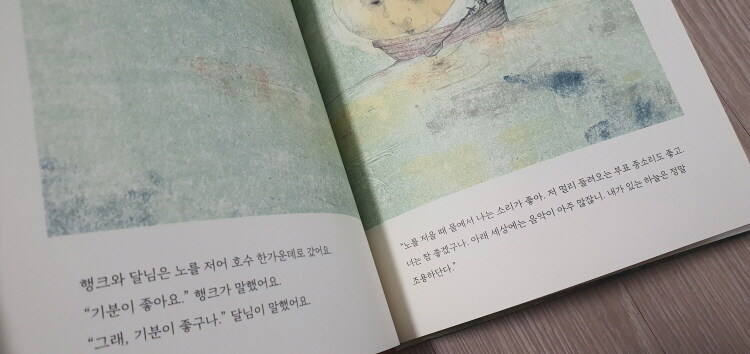 행크와 달님은 노를 저어 호수 한가운데로 갔어요
“기분이 좋아요.” 행크가 말했어요.
“그래, 기분이 좋구나.” 달님이 말했어요.
“노를 저을 때 물에서 나는 소리가 좋아. 저 멀리 들려오는 부표 종소리도 좋고.
너는 참 좋겠구나. 아래 세상에는 음악이 아주 많잖니. 내가 있는 하늘은 정말
조용하단다.”